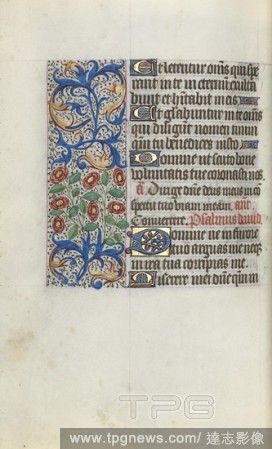 Et letentur om̄s qui spe
rant in te in eternum exulta
bunt et habitabit in eis.
Et gl̄abuntur in te om̄s
qui diligunt nomen tuum
qm̄ tu benedices iusto.
Domine ut scuto bone
voluntatis tue coronasti nos.
a. Dirige dn̄e deus meus in cō
spectu tuo viam meam. ant.
Convertere. Psalmus david.
Domine ne in furore
tuo arguas me neq̄
in ira tua corripias me.
Miserere mei dn̄e qm̄ in
TPG
www.tpgnews.com/達志影像